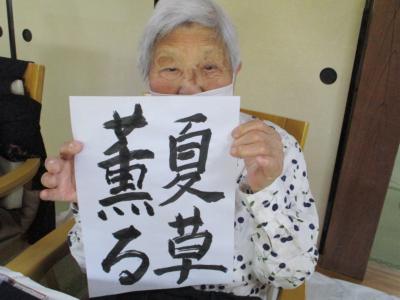 夏草
薫る